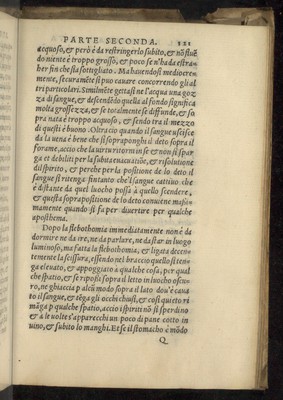 PARTE SECONDA. 121
acquoso, & però è da restringerlo subito, & nō stue
do niente è troppo grosso, & poco se n'ha da estra-
her fin che sia sottigliato. Ma hauendosi mediocre
mente, securamēte si puo cauare concorrendo gl'al
tri particolari. Similmēte gettasi ne l'acqua una goz
za di sangue, & descendēdo quella al fondo significa
molta grossezza, & se totalmente si diffunde, & so
pra nata è troppo acquoso, & sendo tra il mezzo
di questi è buono. Oltra cio quando il sangue uscisce
da la uena è bene che si sopraponghi il deto sopra il
forame, accio che la uirtu ritorni in se & non si spar
ga et debiliti per la subita euacuatiōe, & risolutione
di spirito, & perche per la positione de lo deto il
sangue si ritenga fintanto che'l sangue cattiuo che
è distante da quel luocho possa à quello scendere,
& questa soprapositione de lo deto conuene massi-
mamente quando si fa per diuertire per qualche
aposthema.
Dopo la flebothomia immediatamente non è da
dormire ne da ire, ne da parlare, ne da star in luogo
luminoso, ma fatta la flebothomia, & ligata decen-
temente la scissura, essendo nel braccio quello si ten-
ga eleuato, & appoggiato a qualche cosa, per qual
che spatio, & se riposi sopra il letto in luocho ofcu-
ro, ne ghiaccia p alcū modo sopra il lato dou'è caua
to il sangue, & tēga gli occhi chiusi, et cosi quieto ri
māga p qualche spatio, accio i spiriti nō si sperdino
& a le uolte s'apparecchi un poco di pane cotto in
uino, & subito lo manghi. Et se il stomacho è mōdo
Q